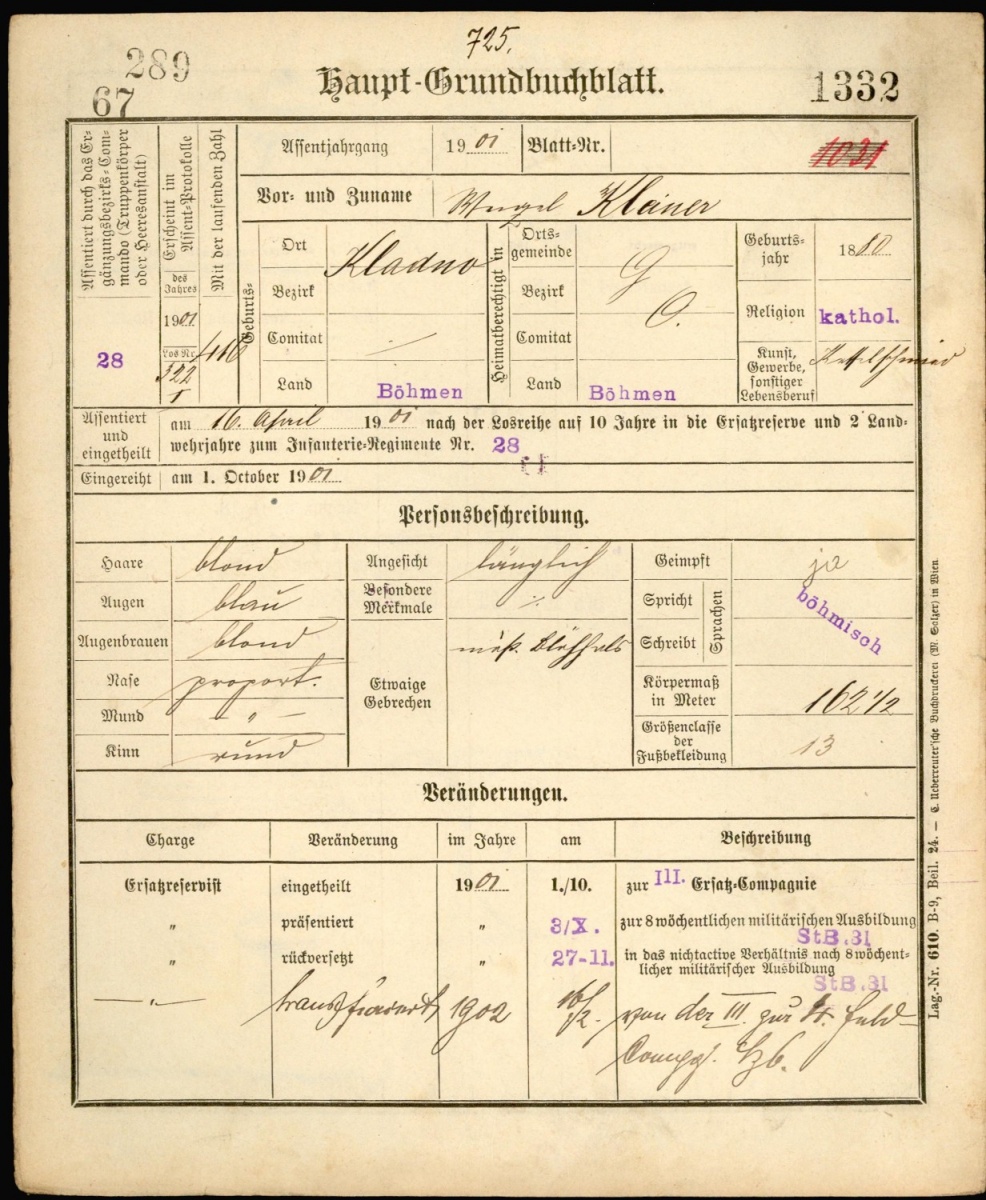 725.
289
67
Haupt-Grundbuchblatt.
1332
Assentiert durch das Er-
gänzungsbezirks-Com-
mando (Truppenkörper
oder Heeresanstalt)
28
Erscheint im
Assent-Protokolle
des
Jahres
1901
Los Nr.
322
1
Mit der laufenden Zahl
Assentjahrgang 1901 Blatt-Nr. 1031
Vor- und Zuname Kleiner
Geburts-
Ort Kladno
Bezirk
Comitat
Land Böhmen
Heimatberechtigt in
Orts-
gemeinde
Bezirk
Comitat
Land Böhmen
Geburts-
jahr 1880
Religion kathol.
Kunst,
Gewerbe,
sonstiger
Lebensberuf Kesselschmied
Assentiert
und
eingetheilt
am 16. April 1901 nach der Losreihe auf 10 Jahre in die Ersatzreserve und 2 Land-
wehrjahre zum Infanterie-Regimente Nr. 28
Eingereiht am 1. October 1901
Personsbeschreibung.
Haare blond
Augen blau
Augenbrauen blond
Nase proport.
Mund - „ -
Kinn rund
Angesicht länglich
Besondere
Merkmale ./.
Etwaige
Gebrechen mäß. Blähhals
Geimpft ja
Spricht
Schreibt
Sprachen
böhmisch
Körpermaß
in Meter 162 1/2
Größenclasse
der
Fußbekleidung 13
Veränderungen.
Charge Veränderung im Jahre am Beschreibung
Ersatzreservist eingetheilt 1901 1./10. zur III. Ersatz-Compagnie
„ präsentiert „ 3/X. zur 8 wöchentlichen militärischen Ausbildung
StB.31
„ rückversetzt „ 27-11. in das nichtactive Verhältnis nach 8 wöchent-
licher militärischer Ausbildung
StB.31
—„— transferiert 1902 von der III. zur Feld-
Compg.
Lag.-Nr. 610. B-9, Beil. 24. — C. Ueberreuter'sche Buchdruckerei (M. Salzer) in Wien